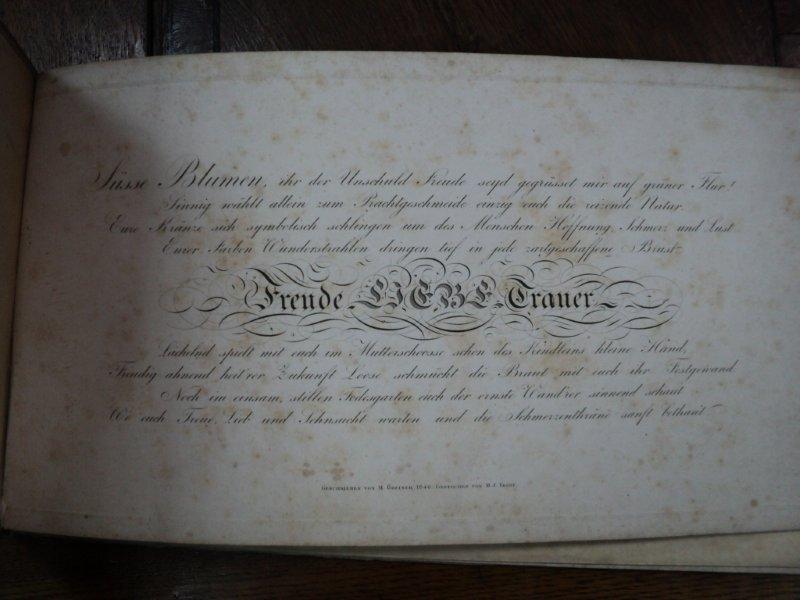 Süsse Blumen, ihr der Unschuld Freude seyd gegrüsset mir auf grüner Flur!
Sinnig wählt allein zum Prachtgeschmeide einzig euch die reizende Natur.
Eure Kränze sich symbolisch schlingen um des Menschen Hoffnung, Schmerz und Lust
Eurer Farben Wunderstrahlen dringen tief in jede zartgeschaffene Brust
Freude LIEBE Trauer
Lächelnd spielt mit euch im Mutterschoosse schon des Kindleins kleine Hand,
Freudig ahnend heit'rer Zukunft Loose schmückt die Braut mit euch ihr Festgewand
Noch im einsam, stillen Todesgarten euch der ernste Wand'rer sinnend schaut
Wo euch Treue, Lieb und Sehnsucht warten und die Schmerzenthräne sanft bethaut
GESCHRIEBEN VON M. 1840. GESTOCHEN VON M. J.